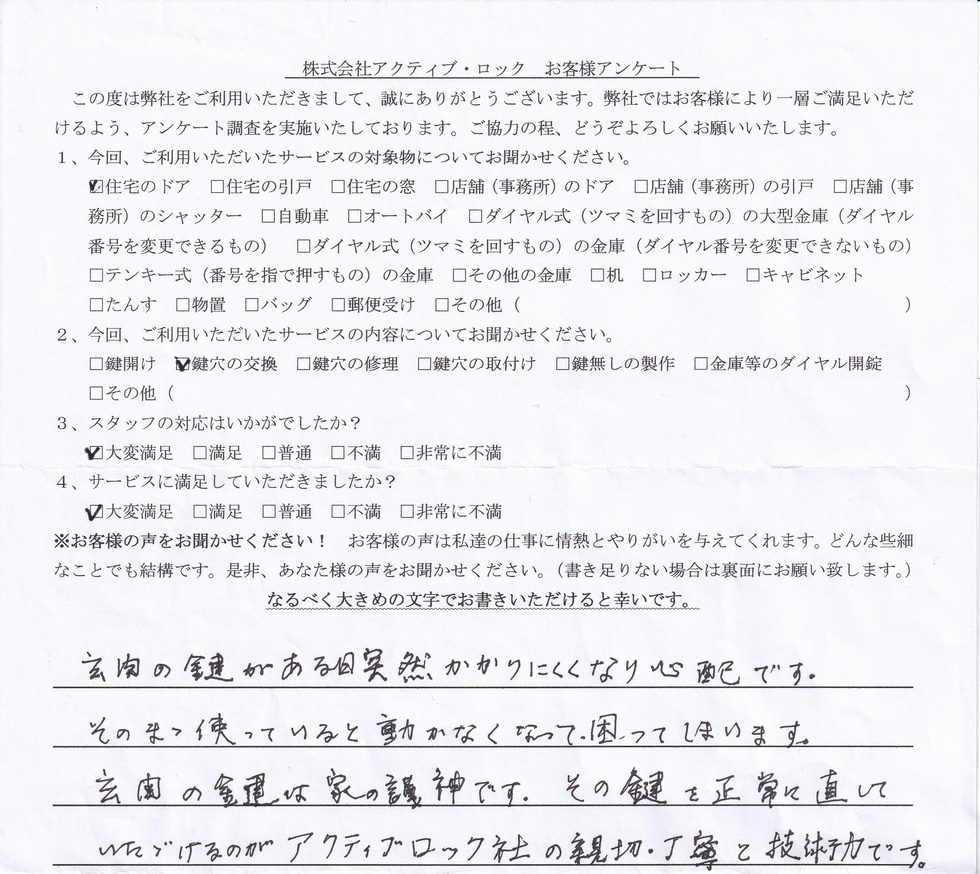 株式会社アクティブ・ロック　お客様アンケート
この度は弊社をご利用いただきまして、誠にありがとうございます。弊社ではお客様により一層ご満足いただ
けるよう、アンケート調査を実施いたしております。ご協力の程、どうぞよろしくお願いいたします。
１、今回、ご利用いただいたサービスの対象物についてお聞かせください。
☑住宅のドア　□住宅の引戸　□住宅の窓　□店舗（事務所）のドア　□店舗（事務所）の引戸　□店舗（事
務所）のシャッター　□自動車　□オートバイ　□ダイヤル式（ツマミを回すもの）の大型金庫（ダイヤル
番号を変更できるもの）　□ダイヤル式（ツマミを回すもの）の金庫（ダイヤル番号を変更できないもの）
□テンキー式（番号を指で押すもの）の金庫　□その他の金庫　□机　□ロッカー　□キャビネット
□たんす　□物置　□バッグ　□郵便受け　□その他（　　　　　）
２、今回、ご利用いただいたサービスの内容についてお聞かせください。
□鍵開け　☑鍵穴の交換　□鍵穴の修理　□鍵穴の取付け　□鍵無しの製作　□金庫等のダイヤル開錠
□その他（　　　　　）
３、スタッフの対応はいかがでしたか？
☑大変満足　□満足　□普通　□不満　□非常に不満
４、サービスに満足していただきましたか？
☑大変満足　□満足　□普通　□不満　□非常に不満
※お客様の声をお聞かせください！　お客様の声は私達の仕事に情熱とやりがいを与えてくれます。どんな些細
なことでも結構です。是非、あなた様の声をお聞かせください。（書き足りない場合は裏面にお願い致します。）
なるべく大きめの文字でお書きいただけると幸いです。
玄関の鍵がある日突然かかりにくくなり心配です。
そのまゝ使っていると動かなくなって困ってしまいます。
玄関の鍵は家の護神です。その鍵を正常に直して
いたゞけるのがアクティブロック社の親切・丁寧と技術力です。